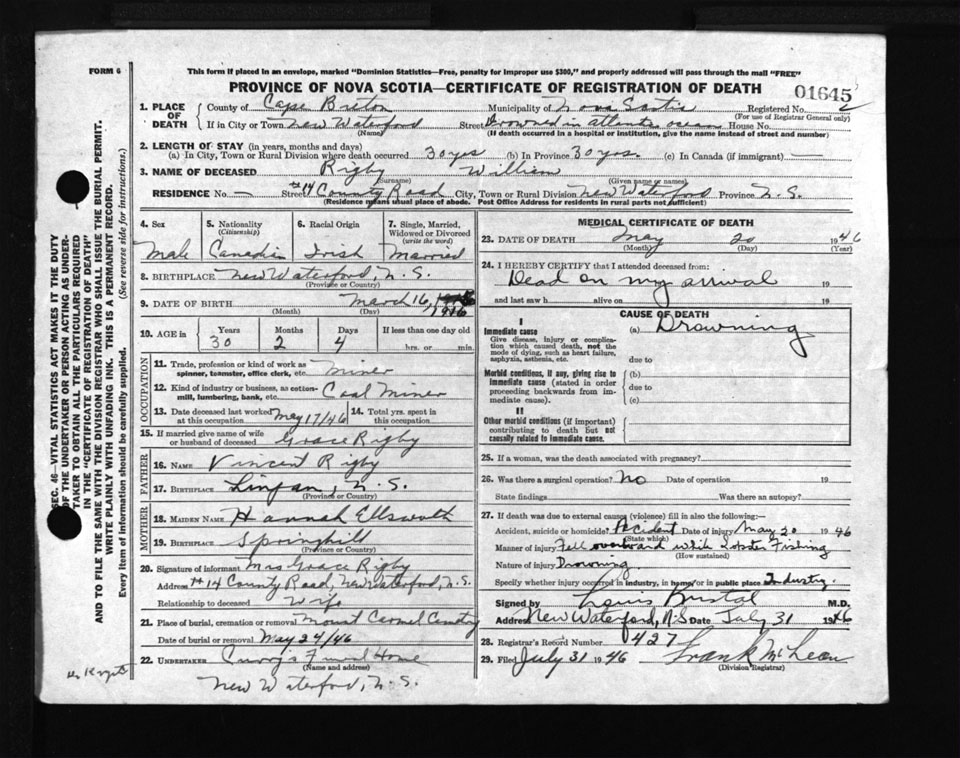 FORM 6
This form if placed in an envelope, marked "Dominion Statistics—Free, penalty for improper use $300," and properly addressed will pass through the mail "FREE"
PROVINCE OF NOVA SCOTIA—CERTIFICATE OF REGISTRATION OF DEATH
01645
1. PLACE OF DEATH
County of Cape Breton Municipality of Nova Scotia Registered No.
(For use of Registrar General only)
If in City or Town New Waterford Street Drowned in Atlantic ocean House No.
(Name) (If death occurred in a hospital or institution, give the name instead of street and number)
2. LENGTH OF STAY (in years, months and days)
(a) In City, Town or Rural Division where death occurred 30 yrs (b) In Province 30 yrs. (c) In Canada (if immigrant) —
3. NAME OF DECEASED Rigby William
(Surname) (Given name or names)
RESIDENCE No. — Street #14 County Road City, Town or Rural Division New Waterford Province N.S.
(Residence means usual place of abode. Post Office Address for residents in rural parts not sufficient)
4. Sex Male
5. Nationality (Citizenship) Canadian
6. Racial Origin Irish
7. Single, Married, Widowed or Divorced (write the word) Married
8. BIRTHPLACE New Waterford, N.S.
(Province or Country)
9. DATE OF BIRTH March 16, 1916
(Month) (Day)
10. AGE in Years 30 Months 2 Days 4 If less than one day old hrs. or min.
OCCUPATION
11. Trade, profession or kind of work as spinner, teamster, office clerk, etc. Miner
12. Kind of industry or business, as cotton-mill, lumbering, bank, etc. Coal Miner
13. Date deceased last worked at this occupation May 17/46 14. Total yrs. spent in this occupation
15. If married give name of wife or husband of deceased Grace Rigby
FATHER
16. NAME Vincent Rigby
17. BIRTHPLACE Lingan, N.S.
(Province or Country)
MOTHER
18. MAIDEN NAME Hannah Ellsworth
19. BIRTHPLACE Springhill
(Province or Country)
20. Signature of informant Mrs Grace Rigby
Address #14 County Road, New Waterford, N.S.
Relationship to deceased Wife
21. Place of burial, cremation or removal Mount Carmel Cemetry
Date of burial or removal May 24/46
22. UNDERTAKER Curry's Funeral Home
(Name and address)
New Waterford, N.S.
MEDICAL CERTIFICATE OF DEATH
23. DATE OF DEATH May 20 1946
(Month) (Day) (Year)
24. I HEREBY CERTIFY that I attended deceased from:
Dead on my arrival 19
and last saw h alive on 19
CAUSE OF DEATH
I
Immediate cause (a) Drowning
Give disease, injury or complication which caused death, not the mode of dying, such as heart failure, asphyxia, asthenia, etc.
due to
Morbid conditions, if any, giving rise to immediate cause (stated in order proceeding backwards from immediate cause)
(b)
due to
(c)
II
Other morbid conditions (if important) contributing to death but not causally related to immediate cause.
25. If a woman, was the death associated with pregnancy?
26. Was there a surgical operation? No Date of operation 19
State findings Was there an autopsy?
27. If death was due to external causes (violence) fill in also the following:—
Accident, suicide or homicide? Accident Date of injury May 20 1946
(State which)
Manner of injury Fell overboard while Lobster Fishing
(How sustained)
Nature of injury Drowning.
Specify whether injury occurred in industry, in home, or in public place Industry.
Signed by Louis M.D.
Address New Waterford, N.S Date July 31 1946
28. Registrar's Record Number 427
29. Filed July 31 1946 Frank McLean
(Division Registrar)
SEC. 46—VITAL STATISTICS ACT MAKES IT THE DUTY
OF THE UNDERTAKER OR PERSON ACTING AS UNDERTAKER TO OBTAIN ALL THE PARTICULARS REQUIRED
IN THE "CERTIFICATE OF REGISTRATION OF DEATH"
AND TO FILE THE SAME WITH THE DIVISION REGISTRAR WHO SHALL ISSUE THE BURIAL PERMIT.
WRITE PLAINLY WITH UNFADING INK. THIS IS A PERMANENT RECORD.
Every item of information should be carefully supplied. (See reverse side for instructions.)